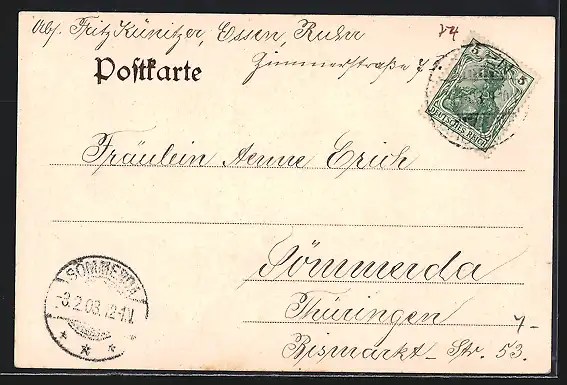 Abs. Fritz Künitzer, Essen, Ruhr
Zimmerstraße 7 I.
24
Postkarte
5 5
DEUTSCHES REICH
Fräulein Aenne Erich
Sömmerda
Thüringen
Bismarkt-Str. 53.
SÖMMERDA
3.2.03.12-1N.